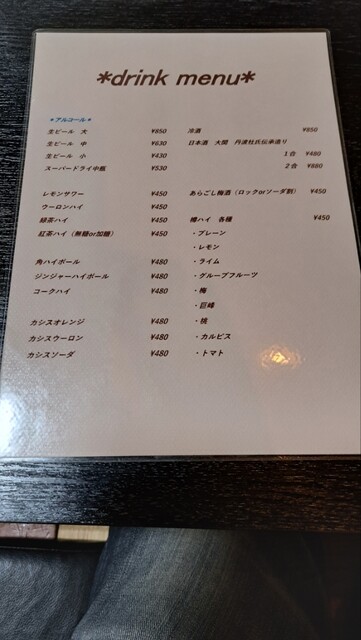 *drink menu*
*アルコール*
生ビール 大 ¥850
生ビール 中 ¥630
生ビール 小 ¥430
スーパードライ中瓶 ¥530
レモンサワー ¥450
ウーロンハイ ¥450
緑茶ハイ ¥450
紅茶ハイ(無糖or加糖) ¥450
角ハイボール ¥480
ジンジャーハイボール ¥480
コークハイ ¥480
カシスオレンジ ¥480
カシスウーロン ¥480
カシスソーダ ¥480
冷酒 ¥850
日本酒 大関 丹波杜氏伝承造り
1合 ¥480
2合 ¥880
あらごし梅酒(ロックorソーダ割) ¥450
樽ハイ 各種 ¥450
・プレーン
・レモン
・ライム
・グループフルーツ
・梅
・巨峰
・桃
・カルピス
・トマト